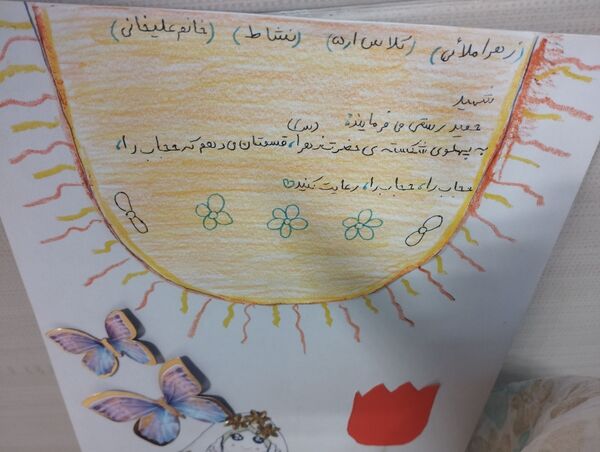 (زهرا ملائی) (کلاس اره) (نشاط) (خانم علیخانی)
شهید
حمید رستمی می فرماینده
به پهلوی شکسته ی حضرت زهرا (س)، قسمتان می دهم که حجاب را،
حجاب را، حجاب را، رعایت کنید